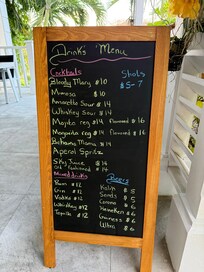 Drinks Menu
Cocktails
Shots
$5-7
Bloody Mary $10
Mimosa $10
Amaretto Sour $14
Whiskey Sour $14
Mojito reg $14 flavored $16
Margarita reg $14 flavored $16
Bahama Mama $14
Aperol Spritz
Sky Juice $14
Old fashioned $14
Mixed drinks
Beers
Rum $12
Kalik $5
Gin $12
Sands $5
Vodka $12
Corona $6
Whiskey $12
Heineken $6
Tequila $12
Guiness $6
Ultra $6